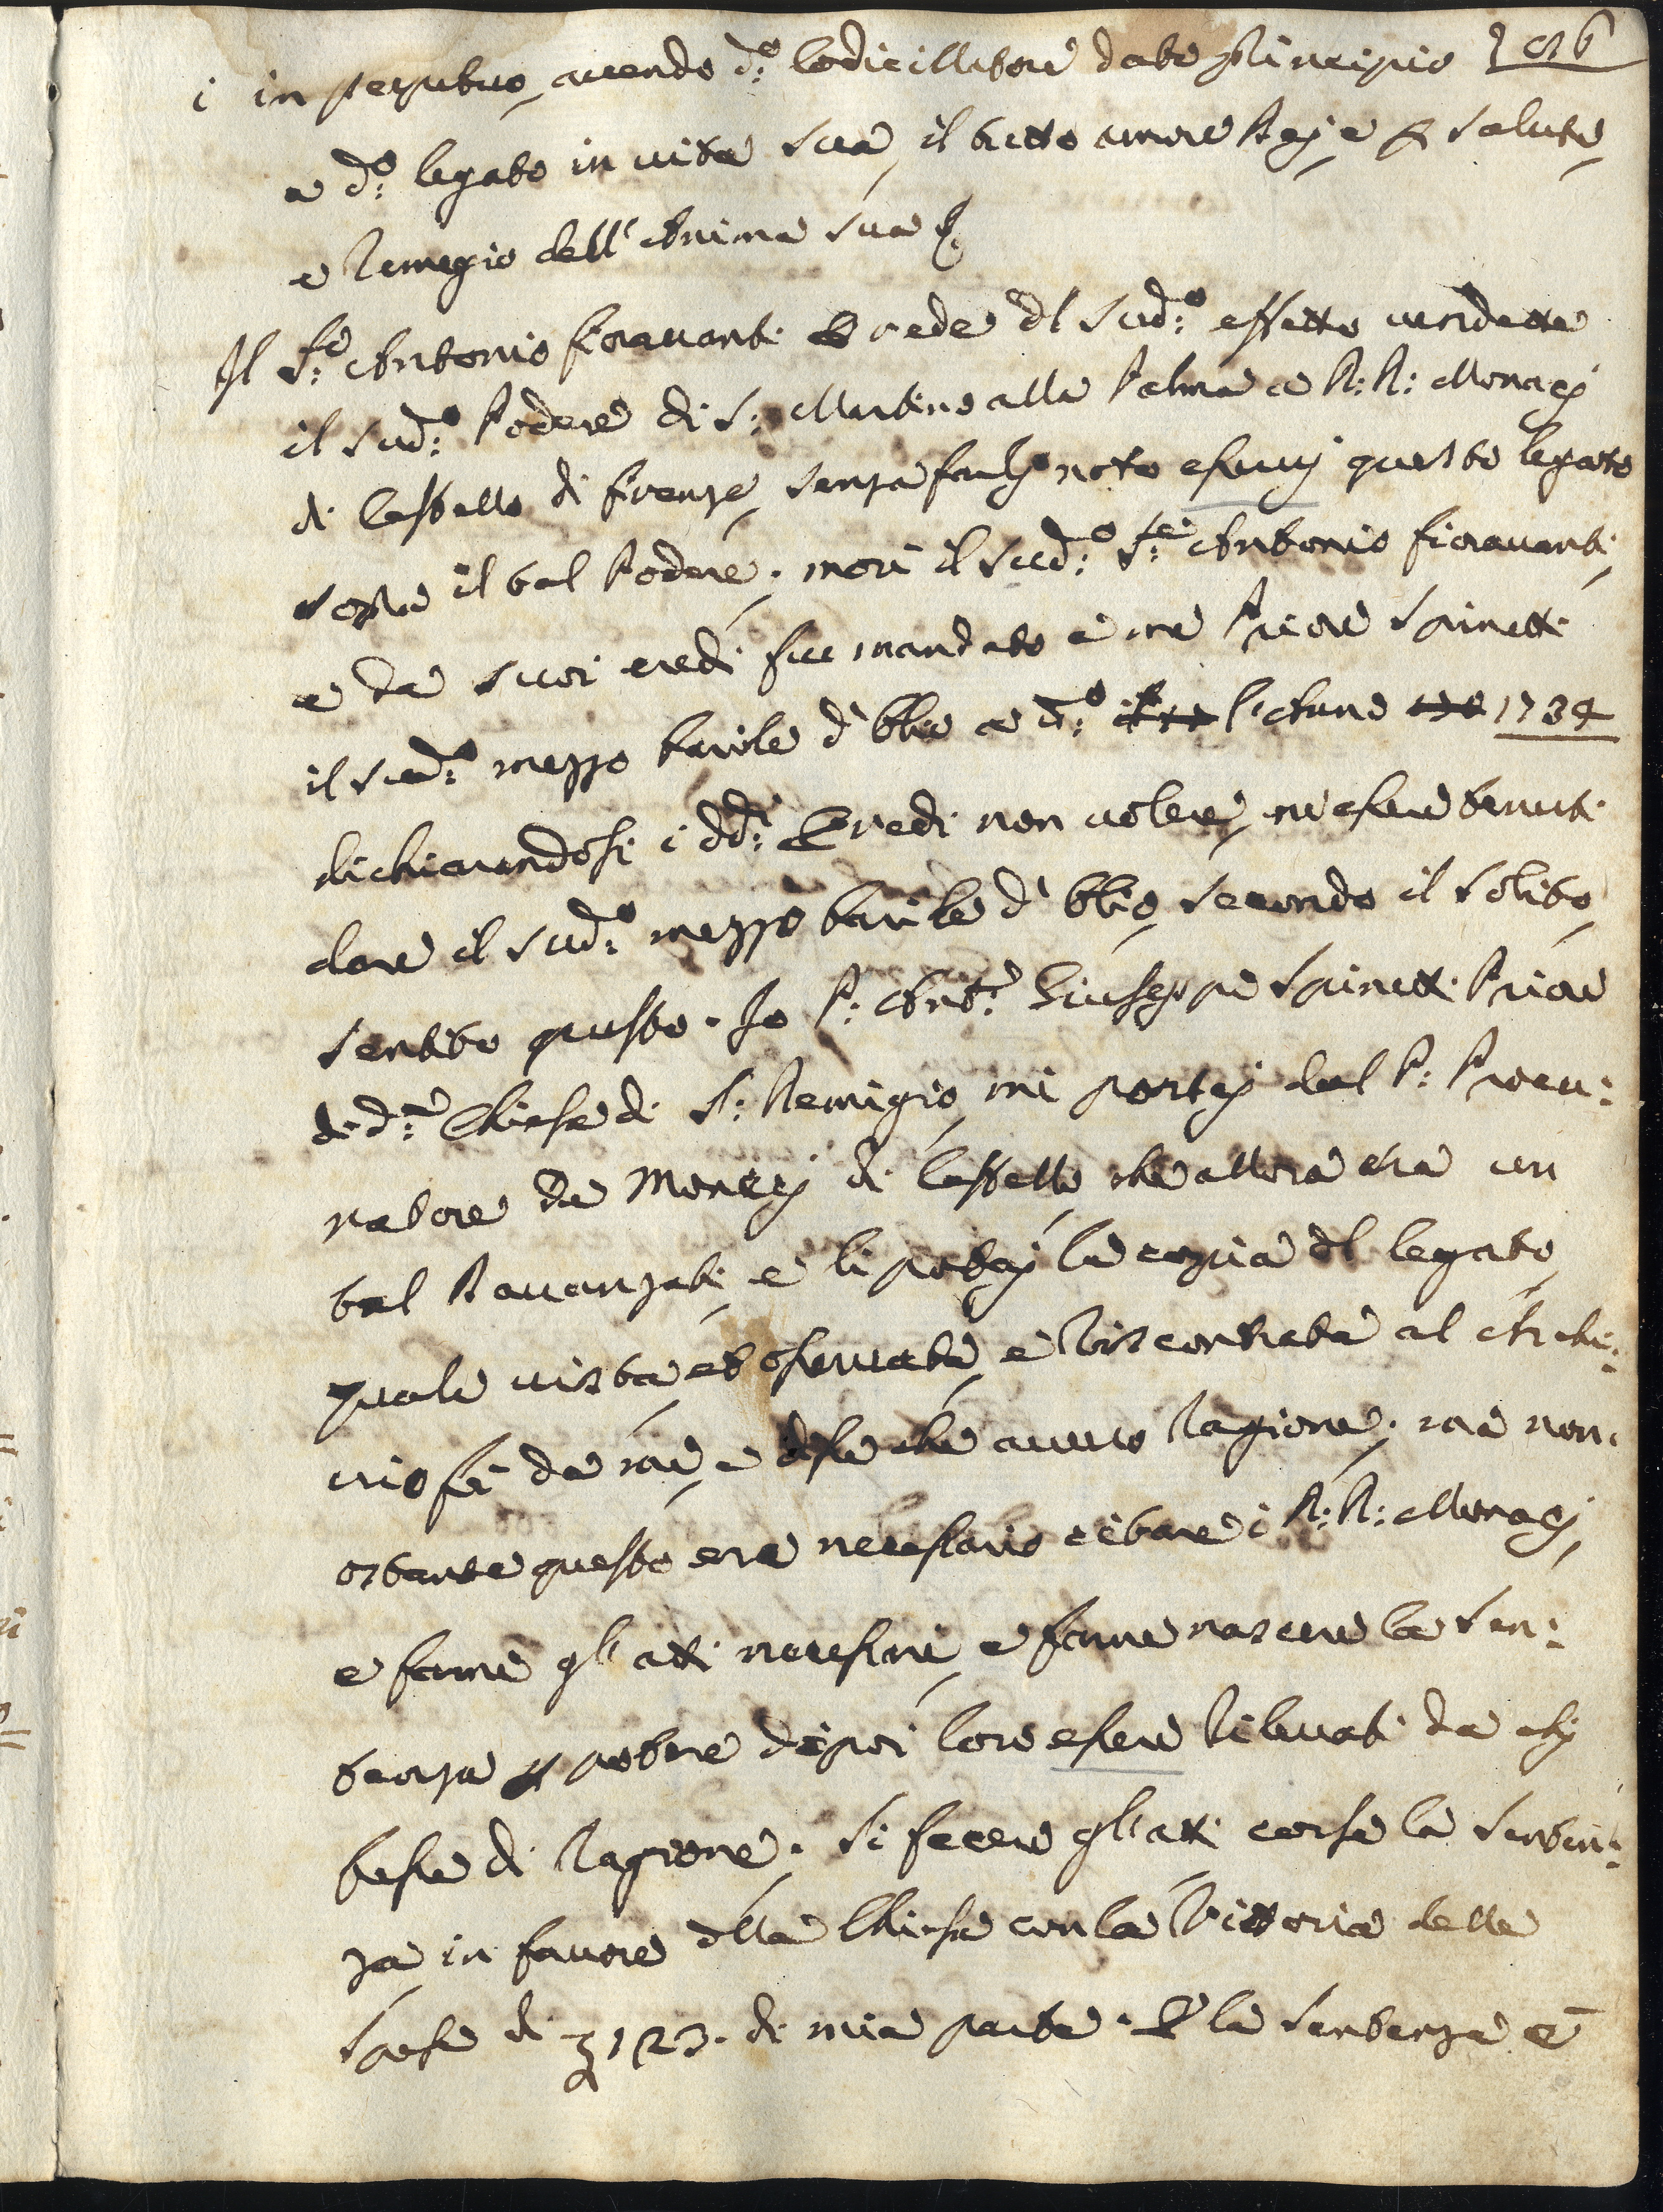 206
i in perpetuo, auendo d.º Codicillatore dato principio
a d.º legato in uita sua, il tutto amore Dej e p salute,
e remegio dell'Anima sua &
Il S.re Antonio fiorauanti Erede dl Sud.º effetto uendette
il Sud.º Podere di S: Martino alla Palma a R: R: Monacj
di Cestello di firenze, senza farlj noto eserui questo legato
sopra il tal Podere; morì il Sud.º S.re Antonio fiorauanti,
e da suoi eredi fu mandato à me Priore Spinetti
il Sud.º mezzo barile d'Olio a d.º l'Anno 1734
dichiarandosi i dd.i Eredi non uolere, ne esere tenuti
dare il Sud.º mezzo barile d'Olio, secondo il solito,
sentito questo. Io P: Ant.º Giuseppe Spinetti Priore
di d.ª Chiesa di S: Remigio, mi portaj dal P: Procu:
ratore de Monacj di Cestello, che allora era un
tal Rauanzati, e li portaj la copia dl legato,
quale uista, et oseruata, e riscontrata al Archi:
uio fè da me, e dise che aueuo ragione; ma non
ostante questo era necessario citare i R: R: Monacj,
e farne gl'atti necessari, e farne nascere la Sen:
tenza p potere dipoi loro esere rileuati da chj
hesse di ragione. Si fecere gl'atti corse la Senten:
za in fauore dlla Chiesa con la Vittoria delle
Spese di 123. di mia parte. E la Sentenza è